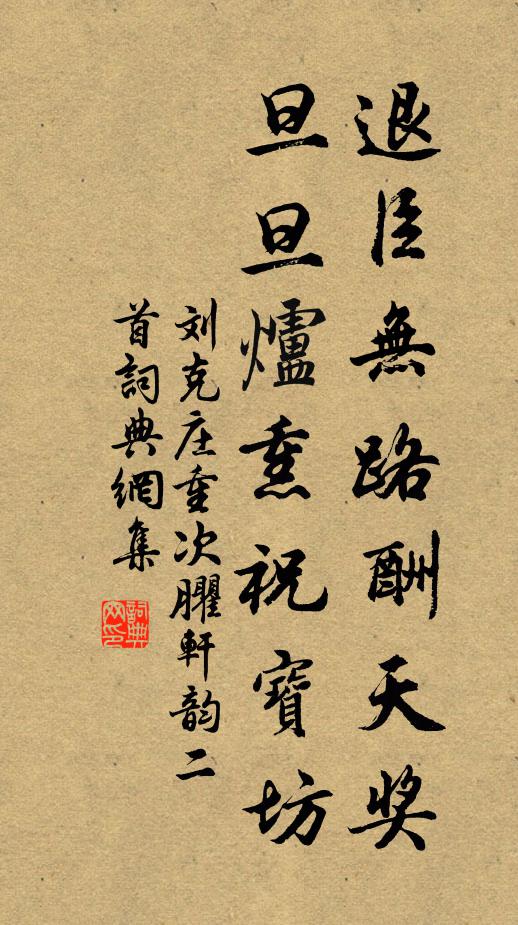 退臣無路酬天奖
旦旦爐熏祝寶坊
刘克庄重次臞軒韵二
首詞典網集
詞典
网印